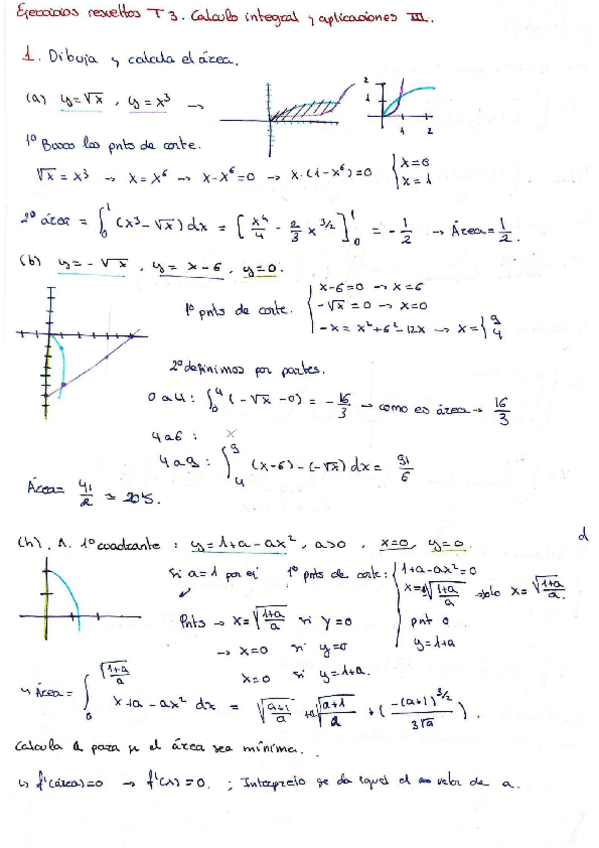 Ejercicios resueltos T 3. Calculo integral y aplicaciones III.
1. Dibuja y calcula el área.
(a) y=√x , y=x³ →
2
1
1 2
1º Busco los pnts de corte.
√x = x³ → x = x⁶ → x-x⁶=0 → x·(1-x⁶)=0 → { x=0
x=1
2º área = ∫₀¹ (x³-√x) dx = [x⁴/4 - 2/3 x^3/2]₀¹ = -1/2 → Área=1/2.
(b) y=-√x , y=x-6 , y=0.
1º pnts de corte. { x-6=0 → x=6
-√x=0 → x=0
-x = x²+6²-12x → x={ 9
4
2º definimos por partes.
0 a 4: ∫₀⁴ (-√x-0) = -16/3 → como es área → 16/3
4 a 6 : x
4 a 9 : ∫₄⁹ (x-6)-(-√x) dx = 91/6
Área= 41/2 = 20'5.
(h). A. 1º cuadrante : y=1+a-ax² , a>0 , x=0, y=0.
d
si a=1 por ej
1º pnts de corte: { 1+a-ax²=0
x=√1+a/a → solo x=√1+a/a.
pnt 0
y=1+a
Pnts → x=√1+a/a si y=0
→ x=0 si y=0
x=0 si y=1+a.
Área= ∫₀^√1+a/a x+a-ax² dx = √a+1/a +a√a+1/a + (-(a+1)^3/2 / 3√a).
Calcula a para q el área sea mínima.
↳ f'(área)=0 → f'(x)=0. ; Interprelo se da igual el valor de a.